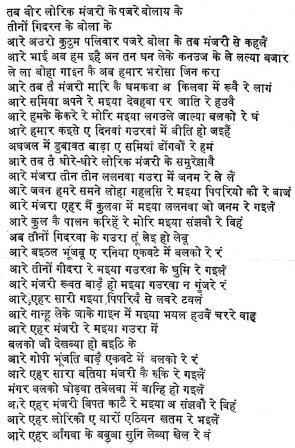 तब बीर लोरिक मंजरी के पजरे बोलाय के
तीनों गिदरन के बोला के
आरे अउरो कुटुम पलिवार पजरे बोला के तब मंजरी से कहलें
आरे भाई अब हम इहै अन तन घन लेके कनउज के ले लत्या बजार
ले ला बोहा गाईन कै अब हमार भरोसा जिन करा
आरे तब तै मंजरी मारि कै घमकवा अ किलवा में रूवै रे लागं
आरे समिया अपने रे मइया देवहवा पर जाति रे हउवै
आरे हमके केकरे रे मोरि मइया लगउले जाल्या बलको रे घं
आरे हमार कइसे ए दिनवां गउरवां में बीति हो जइहैं
अधजल में डुबावत बाड़ा ए समियां डोंगवाँ रे हमं
आरे तब तै धीरे-धीरे लोरिक मंजरी के समुरेझावै
आरे मंजरा तीन तीन ललनवा गउरा में जनम रे ले लें
आरे जवन हमरे समने लोहा गहलसि रे मइया पिपरियो की रे बाजं
आरे मंजरा एहर मैं कुलवा में मइया ललनवा जो जनम रे गइलें
आरे कुल कै पालन करिहैं रे मोरि मइया संझवाँ रे बिहं
अब तीनों गिदरवा के गउरा तूं लेइ हो लेबू
आरे बइठल भूंजबू ए रनिया एकवटे में बलको रे रं
आरे तीनों गीदरा रे मइया गउरवा के घुमि रे गइलें
आरे मंजरी रूवत बाड़ै हो मइया गउरवा न गुंजरे रं
आरे एहर सारी गइया पिपरियै से लवरे टवलं
आरे नान्हू लेके जाके गाइन में मइया भयल हउवें चररे बाह
आरे एहर मंजरी रे मइया गउरा में
बलको जौ देखब्या हो बइठि के
आरे गोपी भूंजति बाड़ैं एकवटे में बलको रे रं
आरे एहर सारा बतिया मंजरी कै रुकि रे गइलें
मंगर बलको घोड़वा तबेलवा में बान्हि हो गइलें
आरे एहर मंजरी बिपत काटै रे मइया अ संझवाँ रे बिहं
आरे एहर लोरिकी ए यारों एठियन खतम रे भइलें
आरे एहर आँगवा के बबुआ सुनि लेब्या खेल रे वं